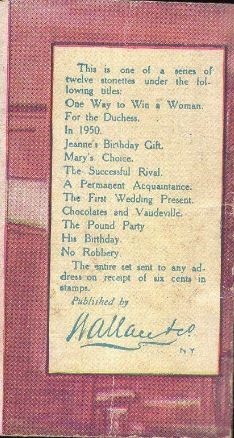 This is one of a series of
twelve storiettes under the fol-
lowing titles:
One Way to Win a Woman.
For the Duchess.
In 1950.
Jeanne's Birthday Gift.
Mary's Choice.
The Successful Rival.
A Permanent Acquaintance.
The First Wedding Present.
Chocolates and Vaudeville.
The Pound Party
His Birthday.
No Robbery.
The entire set sent to any ad-
dress on receipt of six cents in
stamps.
Published by
Wallace & Co.
N Y